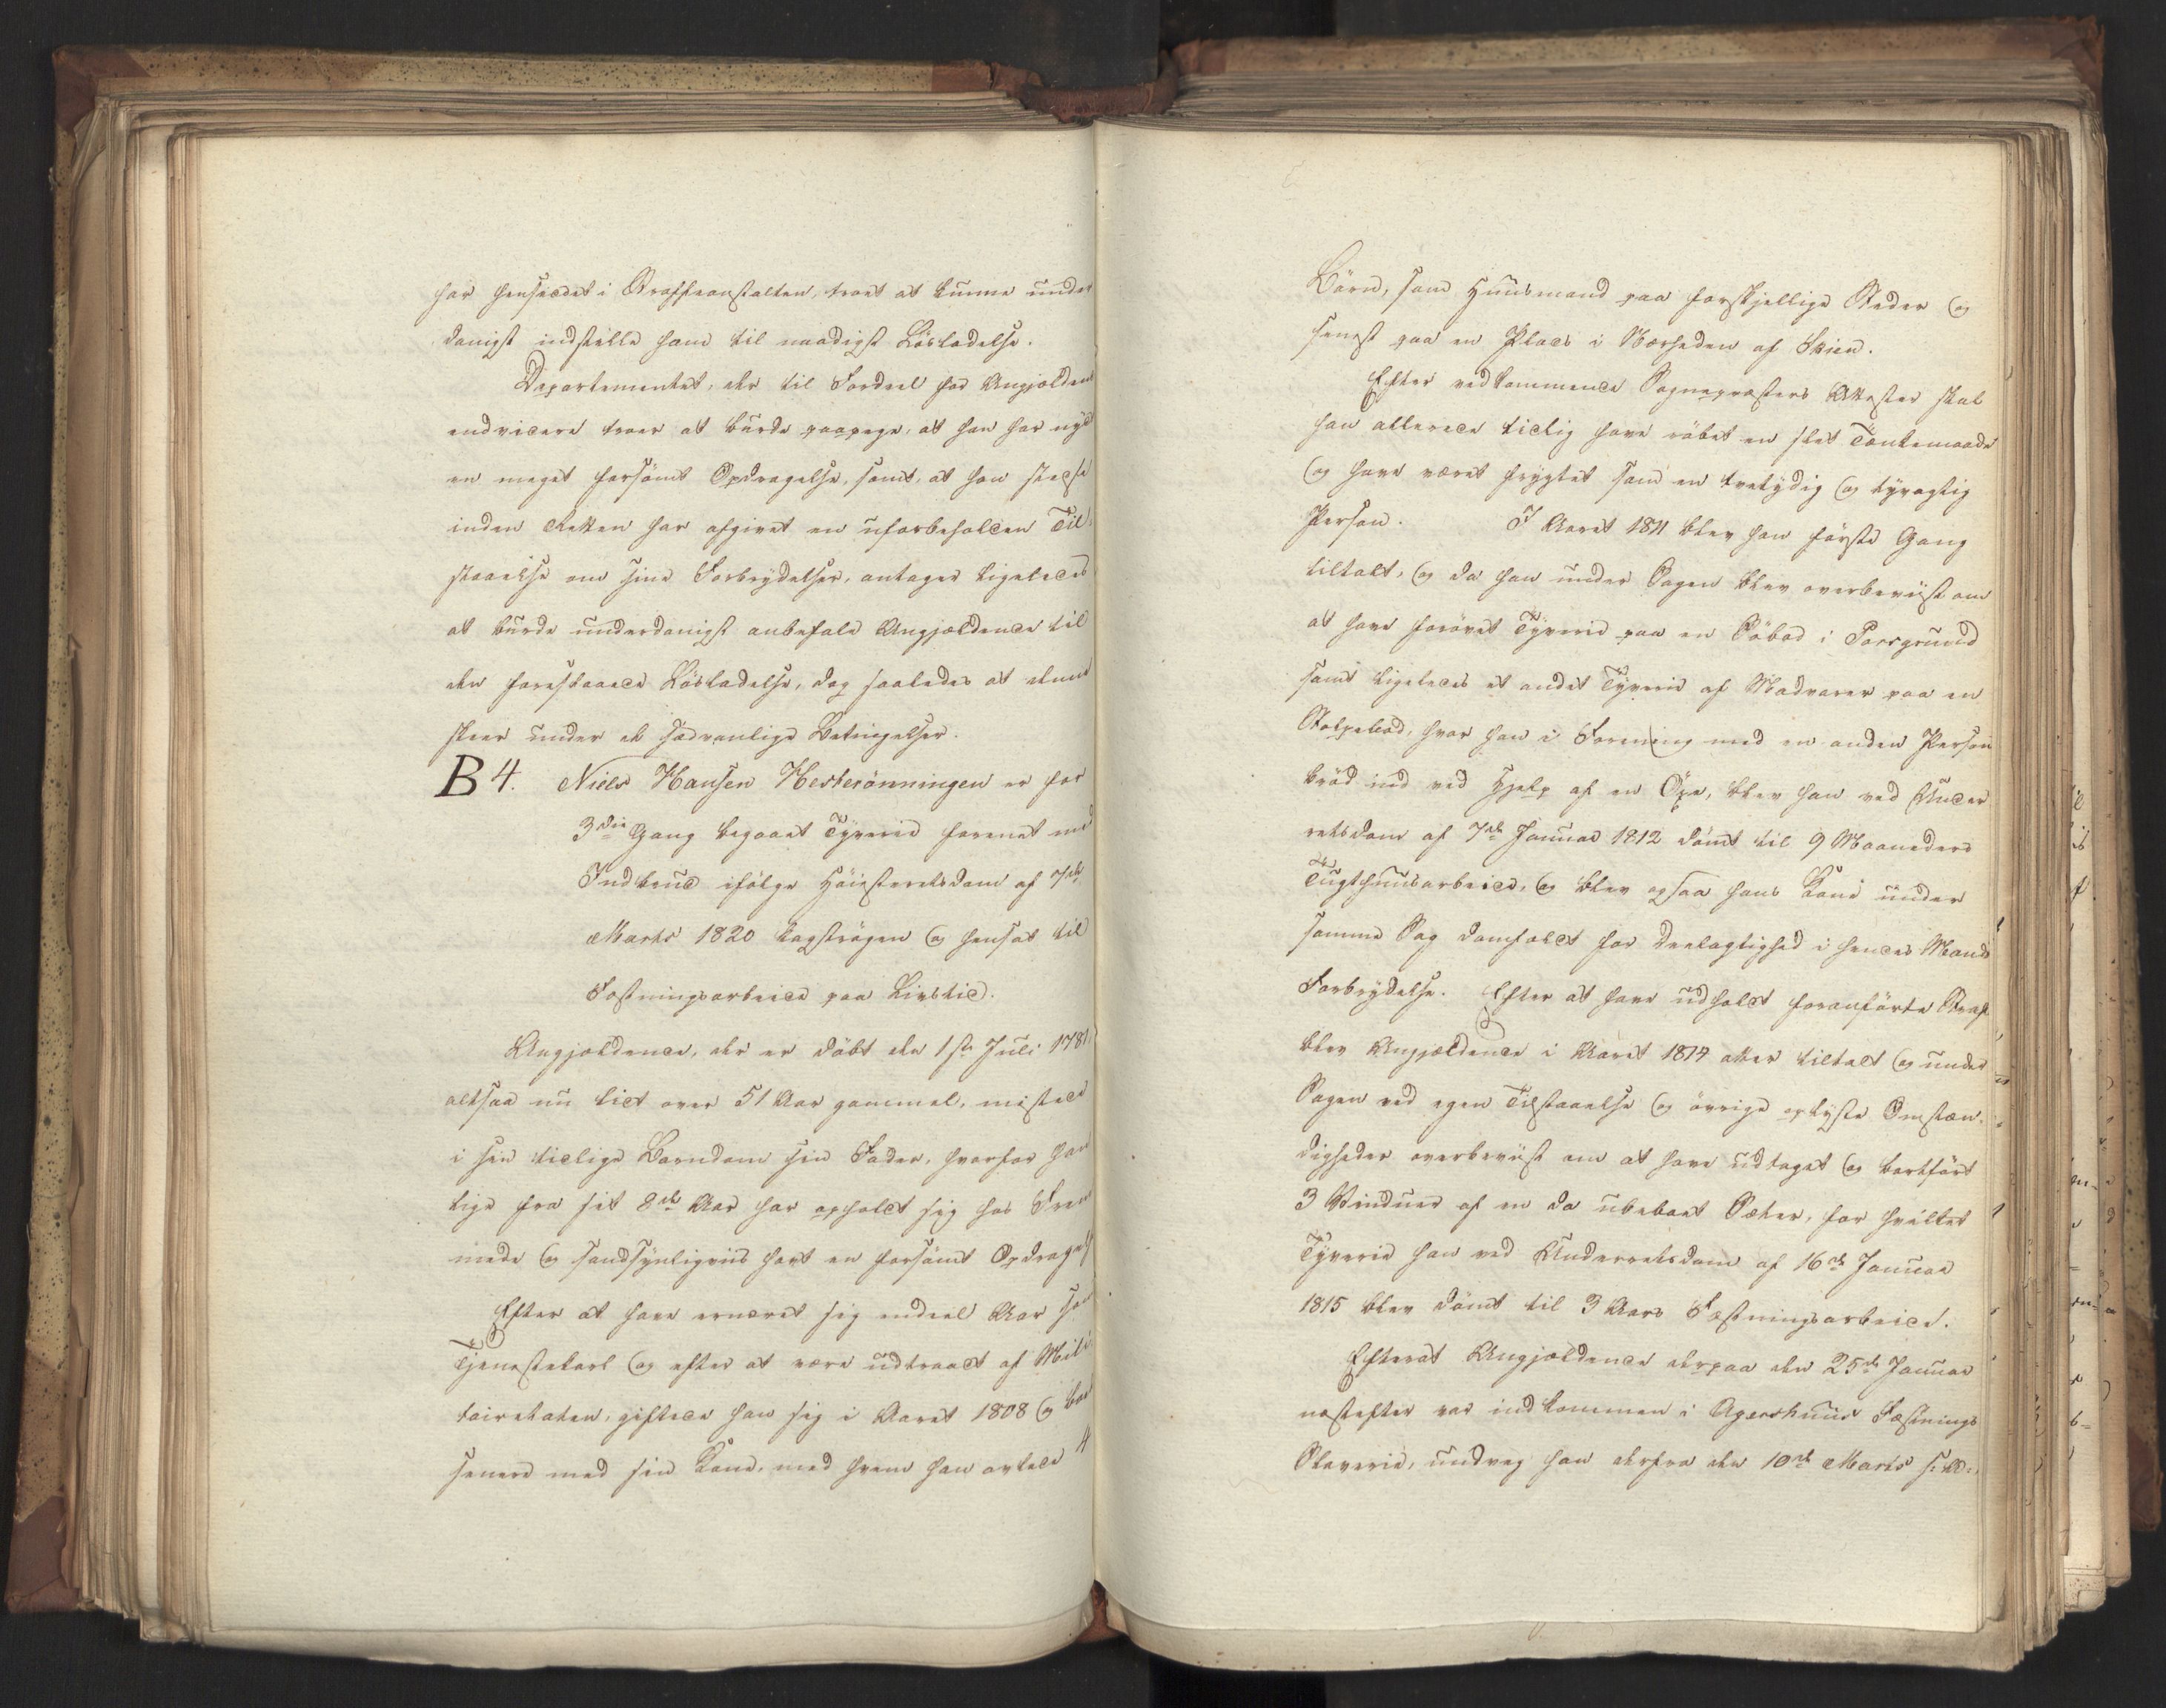 har hensiddet i Straffeanstalten, troet at kunne under
danigst indstille ham til naadigst Löslatelse.
Departementet, der til Fordeel for Angjældende
endvidere troer at burde paapege, at han har nydt
en meget forsömt Opdragelse, samt, at han stedse
inden Retten har afgivet en uforbeholden Til-
staaelse om sine Forbrydelser, antager ligeledes
at burde underdanigst anbefale Angjældende til
den foreslaaede Lösladelse, dog saaledes at denne
skeer under de sædvanlige Betingelser.
B 4. Niels Hansen Hesterönningen er for
3die Gang begaaet Tyverie forenet med
Indbrud ifölge Höiesteretsdom af 7de
Marts 1820 kagströgen og hensat til
Fæstningsarbeide paa Livstid.
Angjældende, der er döbt den 1ste Juli 1781,
altsaa nu lidt over 51 Aar gammel, mistede
i sin tidlige Barndom sin Fader, hvorfor han
lige fra sit 8de Aar har opholdt sig hos Frem
mede og sandsynligviis havt en forsömt Opdragelse
Efter at have ernæret sig endeel Aar som
Tjenestekarl og efter at være udtraadt af Mili-
tairetaten, giftede han sig i Aaret 1808 og boe
senere med sin Kone, med hvem han avlede 4
Börn, som Huusmand paa forskjellige Steder og
senest paa en Plads i Nærheden af Skien.
Efter vedkommende Sognepræsters Attester skal
han allerede tidlig have röbet en slet Tænkemaade
og have været frygtet som en tvetydig og tyvagtig
Person. I Aaret 1811 blev han förste Gang
tiltalt, og da han under Sagen blev overbeviist om
at have forövet Tyverie paa en Söbod i Porsgrund
samt ligeledes et andet Tyverie af Madvarer paa en
Stolpebod, hvor han i Forening med en anden Person
bröd ind ved Hjelp af en Öxe, blev han ved Under
retsdom af 7de Januar 1812 dömt til 9 Maaneders
Tugthuusarbeide, og blev ogsaa hans Kone under
samme Sag domfældt for Deelagtighed i hendes Mands
Forbrydelse. Efter at have udholdt foranförte Straf
blev Angjældende i Aaret 1814 atter tiltalt og under
Sagen ved egen Tilstaaelse og övrige oplyste Omstæn-
digheder overbeviist om at have udtaget og bortfört
3 Vinduer af en da ubeboet Sæter, for hvilket
Tyverie han ved Underretsdom af 16de Januar
1815 blev dömt til 3 Aars Fæstningsarbeide.
Efterat Angjældende derpaa den 25de Januar
næstefter var indkommen i Agershuus Fæstnings
Slaverie, undveg han derfra den 10de Marts s: A:,